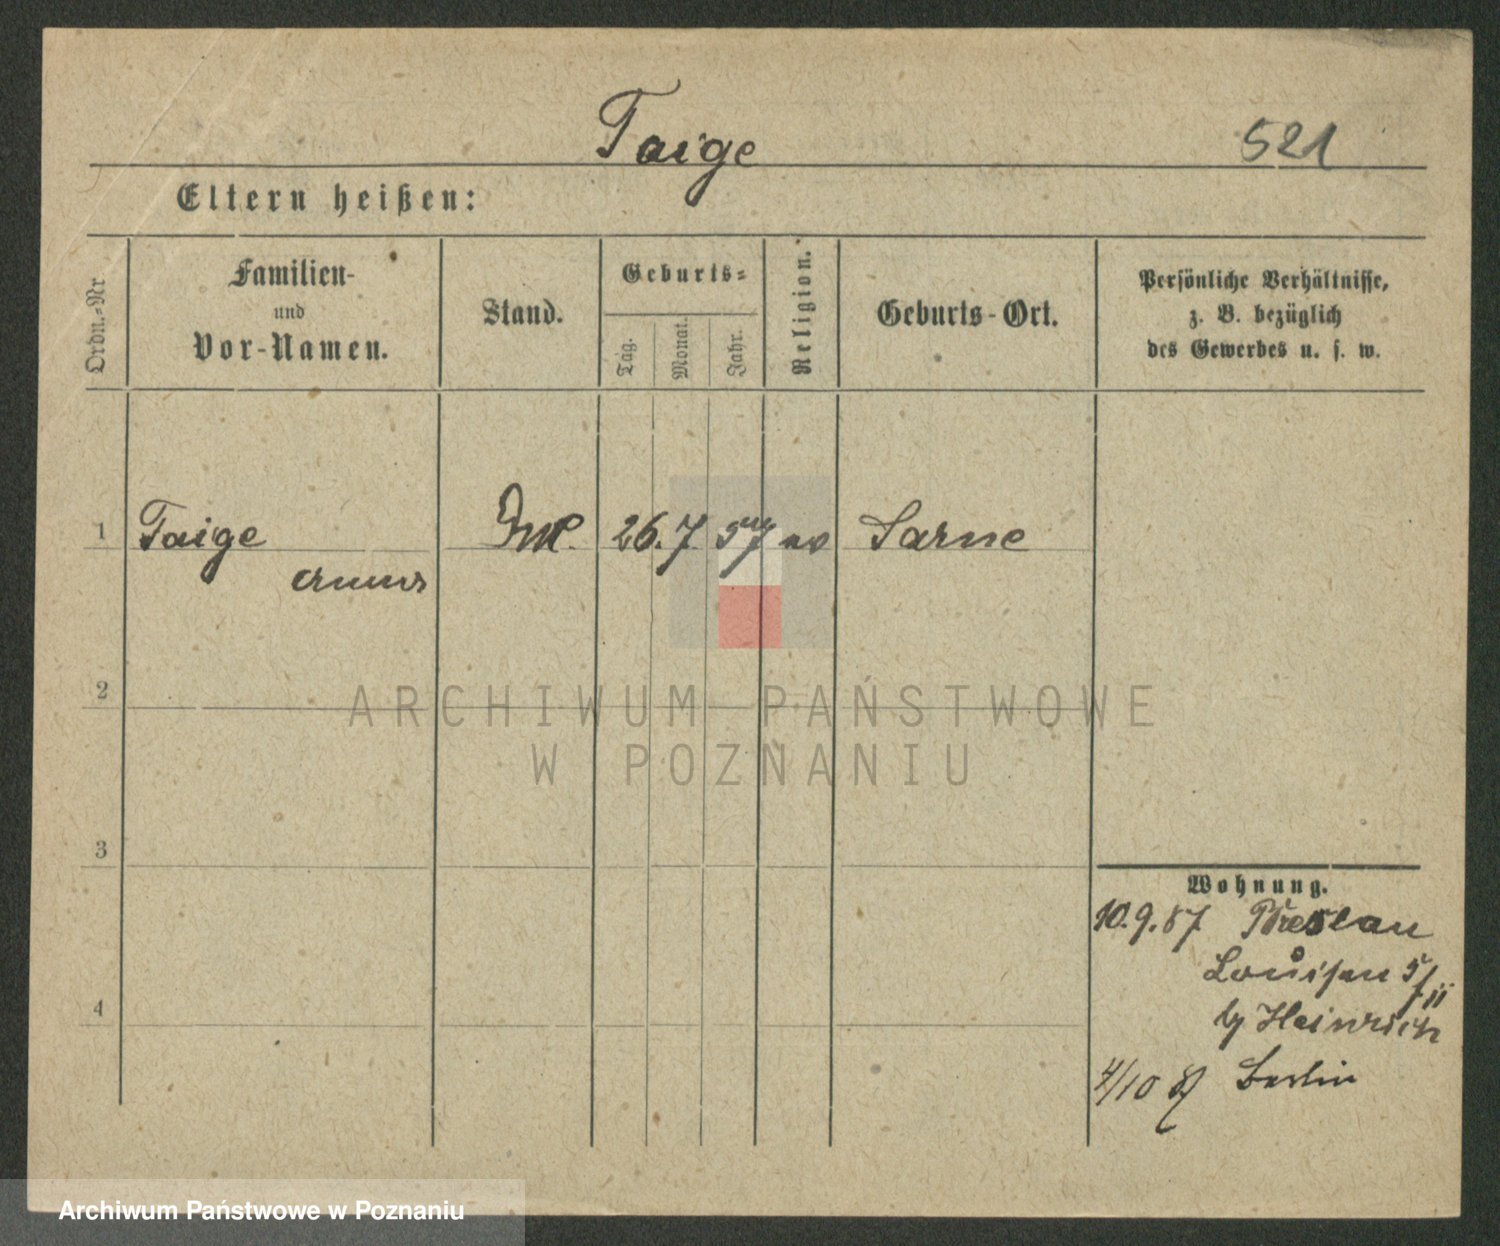 Taige 521
Eltern heißen:
Ordn.-Nr
Familien-
und
Vor-Namen.
Stand.
Geburts-
Tag.
Monat.
Jahr.
Religion.
Geburts-Ort.
Persönliche Verhältnisse,
z. B. bezüglich
des Gewerbes u. s. w.
1 Taige 26. 7. 57 ev Sarne
2
3
4
Wohnung.
10.9.87 Breslau
Louisen 5/II
by Heinrich
4/10 87 Berlin
ARCHIWUM PAŃSTWOWE
W POZNANIU
Archiwum Państwowe w Poznaniu